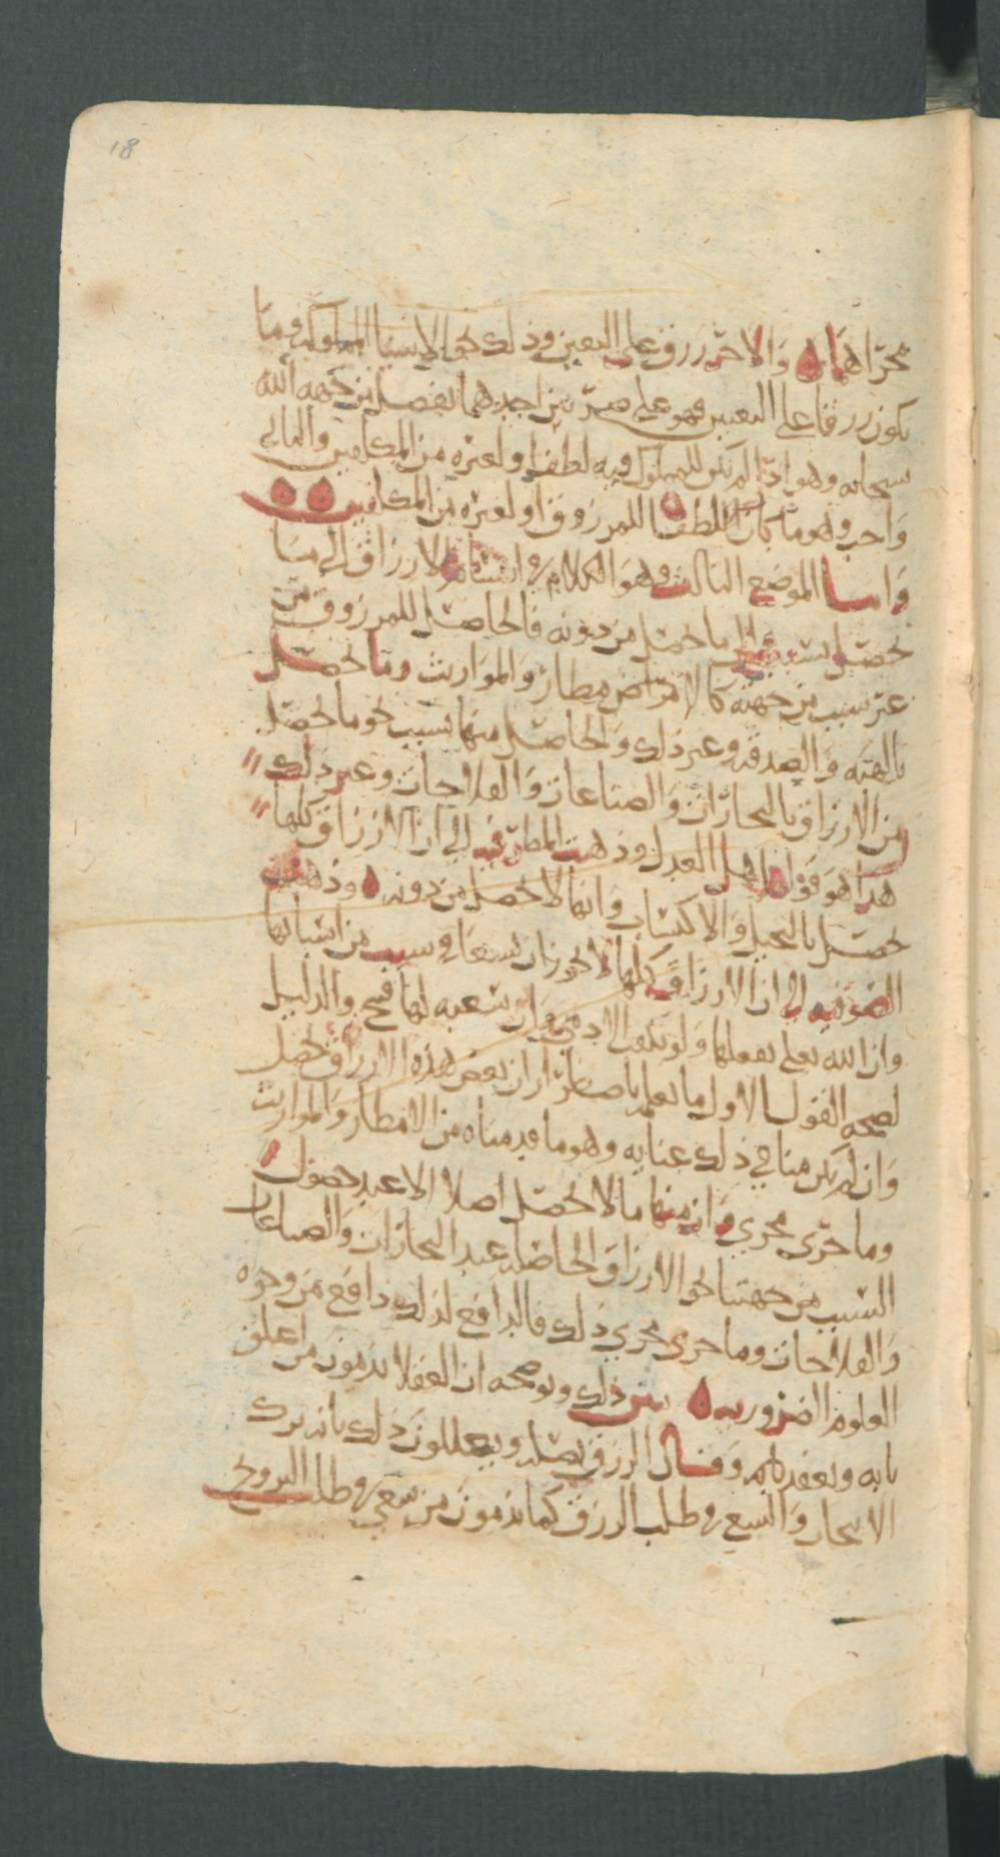 18
مجراهما ۞ والاخر رزق على التعيين وذلك نحو الاشيا المملوكه وما
يكون رزقا على التعيين فهو على ضربين احدهما تفضل من جهه الله
سبحانه وهو اذا لم يكن للمملوك فيه لطف او لغيره من المكلفين والثاني
واجب وهو ما كان لطفا للمرزوق او لغيره من المكلفين ۞ ۞
واما الموضع الثالث وهو الكلام في انقسام الارزاق الى ما
يحصل بسبب والى ما يحصل من دونه فالحاصل للمرزوق من
غير سبب من جهته كالامطار والمواريث وما يحصل
بالهبه والصدقه وغير ذلك والحاصل منها بسبب نحو ما يحصل
من الارزاق بالتجارات والصناعات والفلاحات وغير ذلك
هذا هو قول اهل العدل وذهبت المطرفيه الى ان الارزاق كلها
تحصل بالتحيل والاكتساب وانها لا تحصل من دونه ۞ وذهبت
الصوفيه الى ان الارزاق كلها لا يجوز ان يسعا في سبب من اسبابها
وان الله تعلى يفعلها ولو تلف الادمي وان سعيه لها قبيح والدليل
لصحه القول الاول ما نعلمه باضطرار ان بعض هذه الارزاق تحصل
وان لم يكن منا في ذلك عنايه وهو ما قدمناه من الامطار والمواريث
وما جرى مجرى وان منها ما لا يحصل اصلا الا عند حصول
السبب من جهتنا نحو الارزاق الحاصله عند التجارات والصناعات
والفلاحات وما جرى مجرى ذلك فالدافع لذلك دافع من وجوه
العلوم الضروريه ۞ يبين ذلك ويوضحه ان العقلا يذمون من اغلق
بابه وقال الرزق يصل ويعللون ذلك بانه ترك
الاتجار والسعي في طلب الرزق كما يذمون من سعى في طلب التزويج